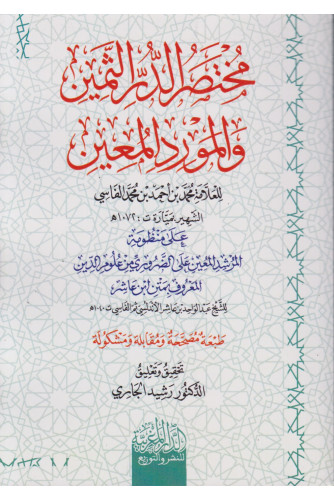 مُخْتَصَرُ الدُّرِّ الثَّمِين
وَالْمَوْرِدِ الْمُعِين
للعَلامة مُحمَّد بن أحمَد بن مُحمَّد الفَاسِي
الشَّهِير بمَيَّارة ت: ١٠٧٢هـ
عَلَى مَنْظُومَة
المُرْشِد المُعِين عَلَى الضَّرُورِيّ مِن عُلُومِ الدِّين
المَعْرُوف بِمَتْن ابْن عَاشِر
للشَّيخ عبد الواحد بن عاشر الأندلسي ثم الفاسي ت ١٠٤٠هـ
طَبْعَة مُصَحَّحَة وَمُقَابَلَة وَمَشْكُولَة
تَحْقِيق وَتَعْلِيق
الدُّكْتُور رَشِيد الْجَارِي
الدار المغربية
للنشر والتوزيع